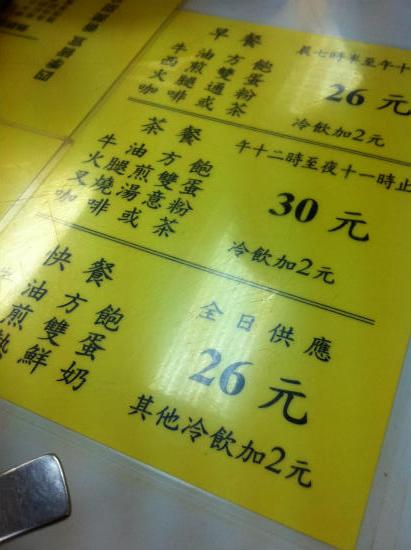 早餐
晨七時半至午十
牛油方飽
火腿煎雙蛋
西煎通粉
咖啡或茶
26元
冷飲加2元
茶餐
午十二時至夜十一時止
牛油方飽
火腿煎雙蛋
叉燒湯意粉
咖啡或茶
30元
冷飲加2元
快餐
全日供應
牛油方飽
煎雙蛋
熱鮮奶
26元
其他冷飲加2元